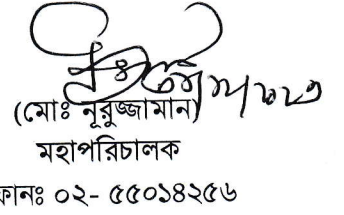 (মোঃ নূরুজ্জামান)
মহাপরিচালক
ফোনঃ ০২- ৫৫০১৪২৫৬